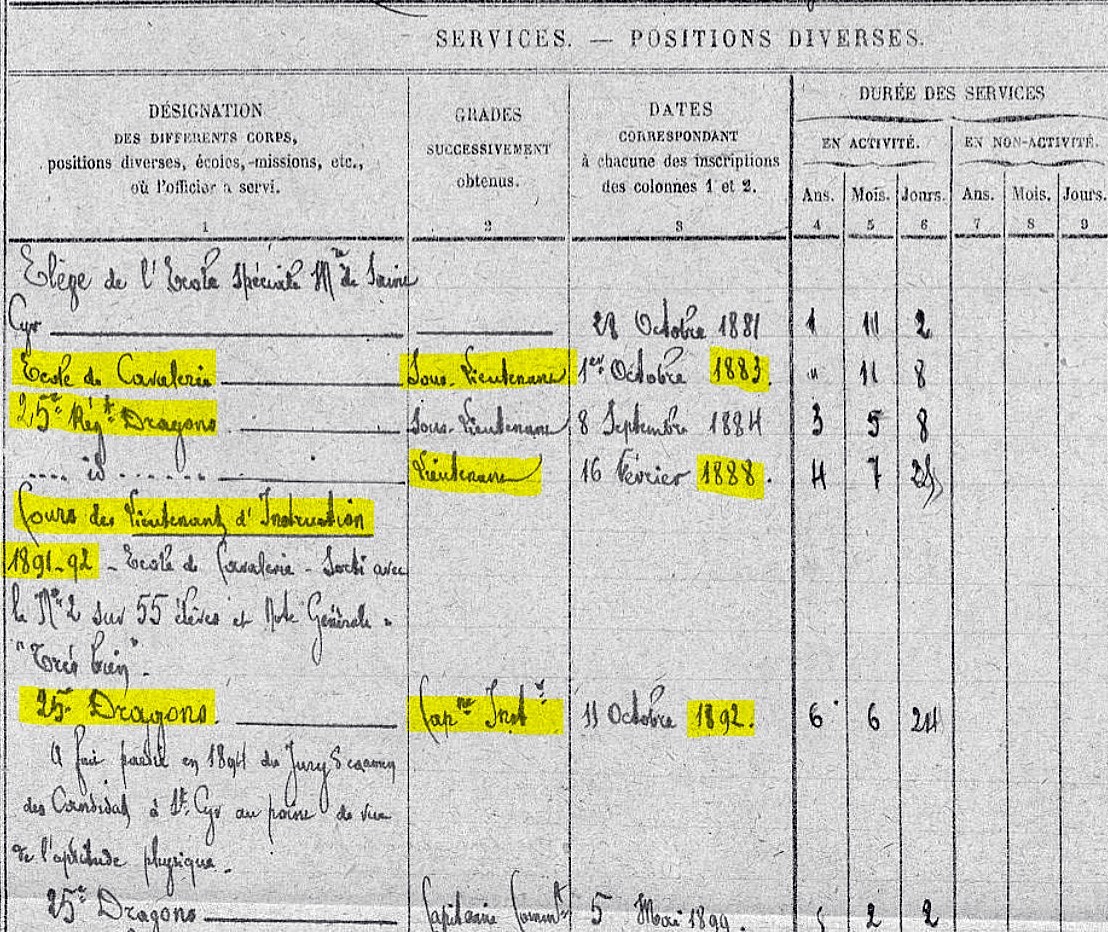 SERVICES. — POSITIONS DIVERSES.
DÉSIGNATION
DES DIFFERENTS CORPS,
positions diverses, écoles,-missions, etc.,
où l'officier a servi.
1
GRADES
SUCCESSIVEMENT
obtenus.
2
DATES
CORRESPONDANT
à chacune des inscriptions
des colonnes 1 et 2.
3
DURÉE DES SERVICES
EN ACTIVITÉ. EN NON-ACTIVITÉ.
Ans. Mois. Jours. Ans. Mois. Jours.
4 5 6 7 8 9
Elève de l'Ecole Spéciale Mre de Saint
Cyr 28 Octobre 1881 1 11 2
Ecole de Cavalerie Sous-Lieutenant 1er Octobre 1883. " 11 8
25e Régt Dragons Sous-Lieutenant 8 Septembre 1884 3 5 8
.... id ....... Lieutenant 16 Février 1888. 4 7 25
Cours des Lieutenants d'Instruction
1891-92 - Ecole de Cavalerie - Sorti avec
le No 2 sur 55 élèves et Note Générale =
"Très bien".
25e Dragons. Capne Instr 11 Octobre 1892. 6 6 24
A fait partie en 1894 du Jury d'examen
des Candidats à St. Cyr au point de vue
de l'aptitude physique.
25e Dragons Capitaine Commt 5 Mai 1899. 2 2